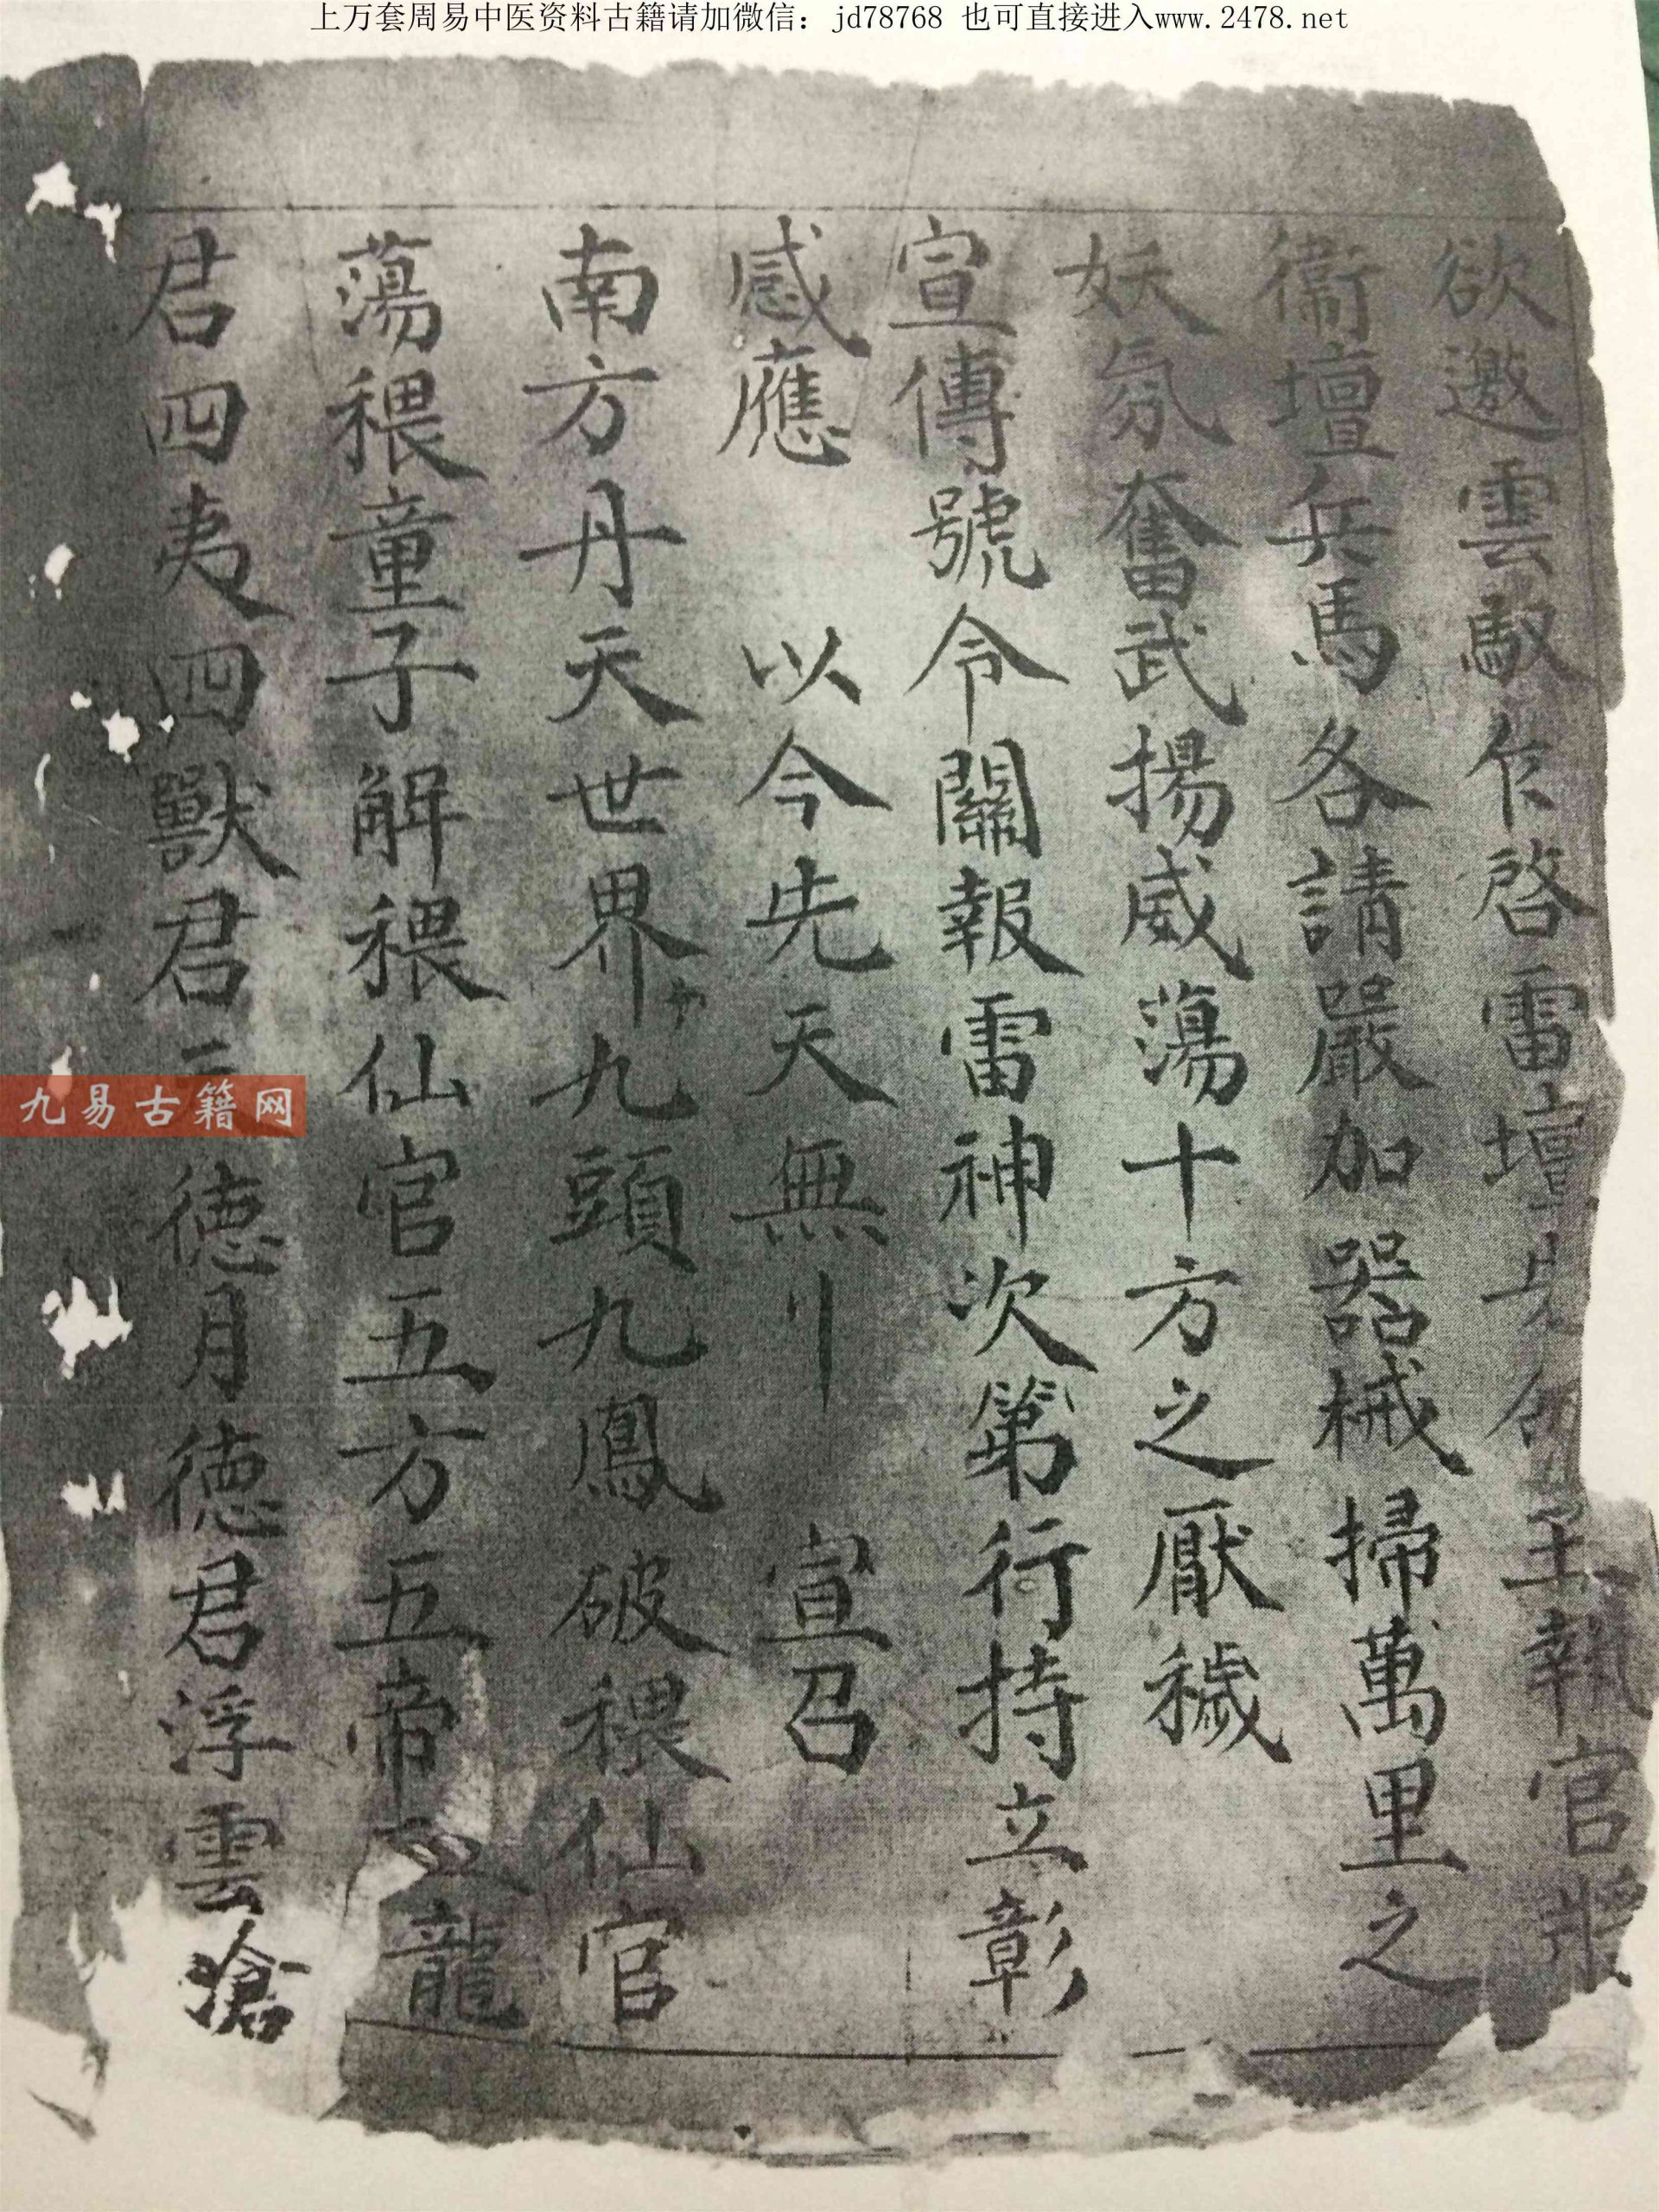 上万套周易中医资料古籍请加微信：jd78768 也可直接进入www.2478.net
欲邀雲馭乍啓雷壇先執官將
衞壇兵馬各請嚴加器械掃萬里之
妖氛奮武揚威蕩十方之厭穢
宣傳號令關報雷神次第行持立彰
感應 以今先天無 宣召
南方丹天世界九頭九鳳破穢仙官
蕩穢童子解穢仙官五方五帝龍
君四夷四獸君德月德君浮雲滄
九易古籍网